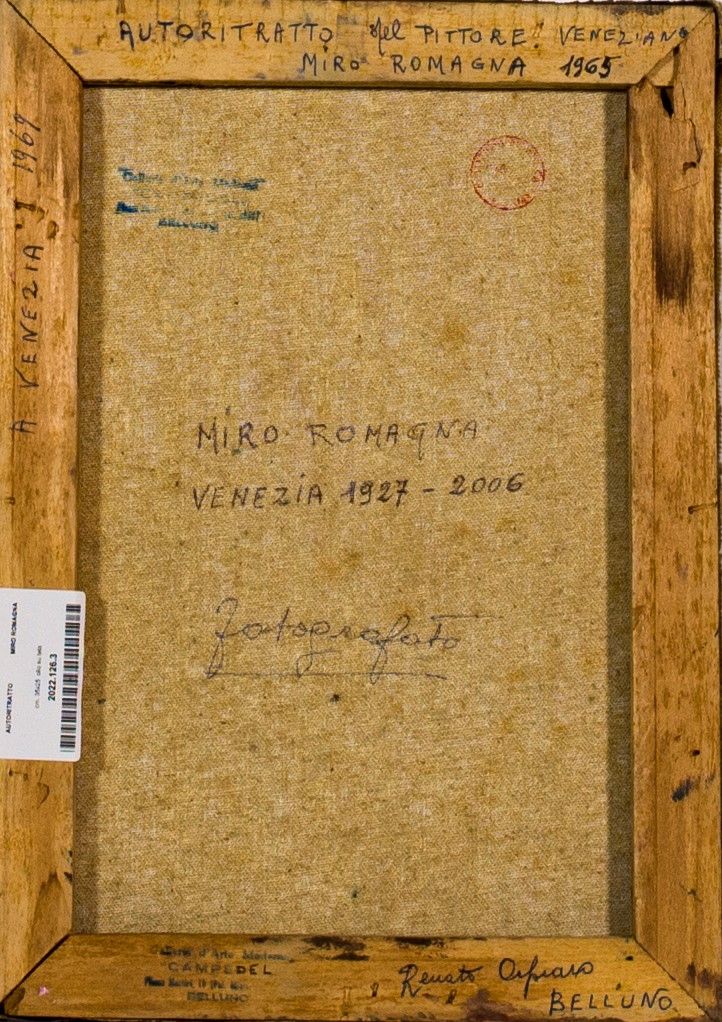 AUTORITRATTO del PITTORE VENEZIANO
MIRO ROMAGNA 1965
A VENEZIA 1969
Galleria d'Arte Moderna
BELLUNO
MIRO ROMAGNA
VENEZIA 1927 - 2006
fotografato
AUTORITRATTO
MIRO ROMAGNA
cm. olio su tela
2022.126.3
Galleria d'Arte Moderna
CAMPEDEL
BELLUNO
Renato
BELLUNO